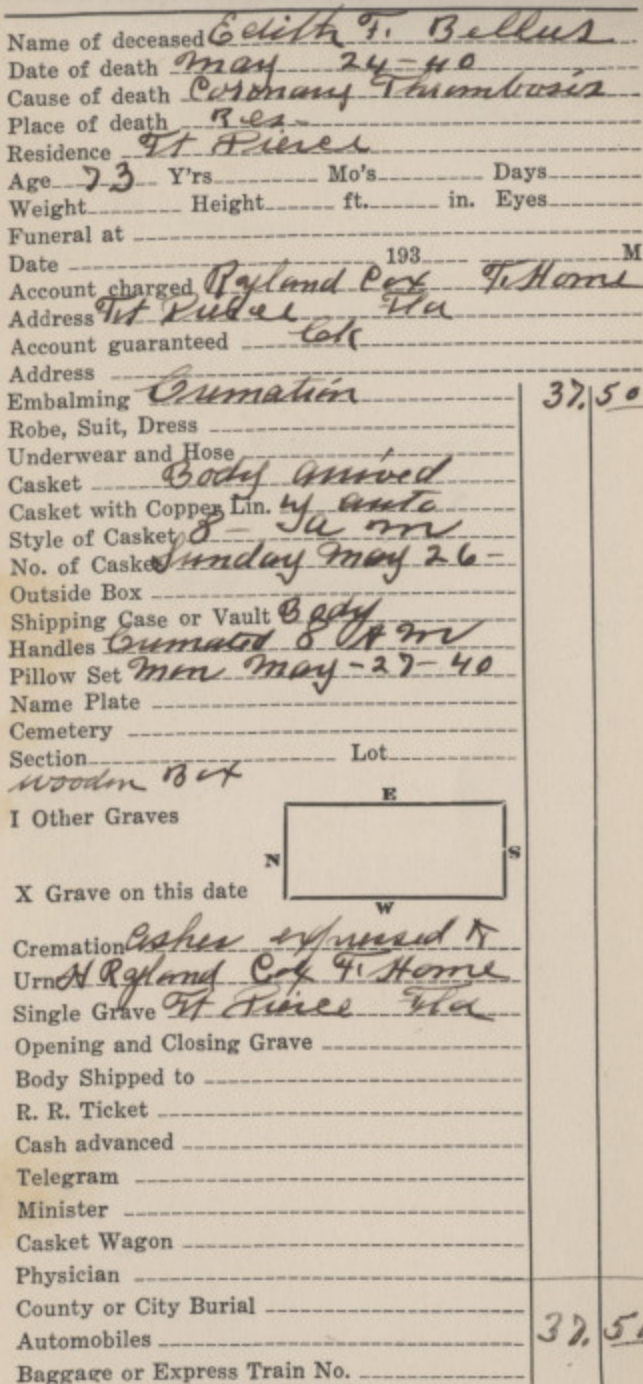 Name of deceased Edith F. Bellus
Date of death May 24-40
Cause of death Coronary Thrombosis
Place of death Res-
Residence Ft Pierce
Age 73 Y'rs Mo's Days
Weight Height ft. in. Eyes
Funeral at
Date 193 M
Account charged Ryland Cox F. Home
Address Ft Pierce Fla
Account guaranteed
Address
Embalming Cremation 37.50
Robe, Suit, Dress
Underwear and Hose
Casket Body arrived
Casket with Copper Lin. by auto
Style of Casket 8- a m
No. of Casket Sunday May 26-
Outside Box
Shipping Case or Vault Body
Handles Cremated 8 A m
Pillow Set Mon May-27-40
Name Plate
Cemetery
Section Lot
Wooden Box
E
I Other Graves
N S
X Grave on this date
W
Cremation Ashes expressed to
Urn H Ryland Cox F. Home
Single Grave Ft Pierce Fla
Opening and Closing Grave
Body Shipped to
R. R. Ticket
Cash advanced
Telegram
Minister
Casket Wagon
Physician
County or City Burial
Automobiles 37.50
Baggage or Express Train No.